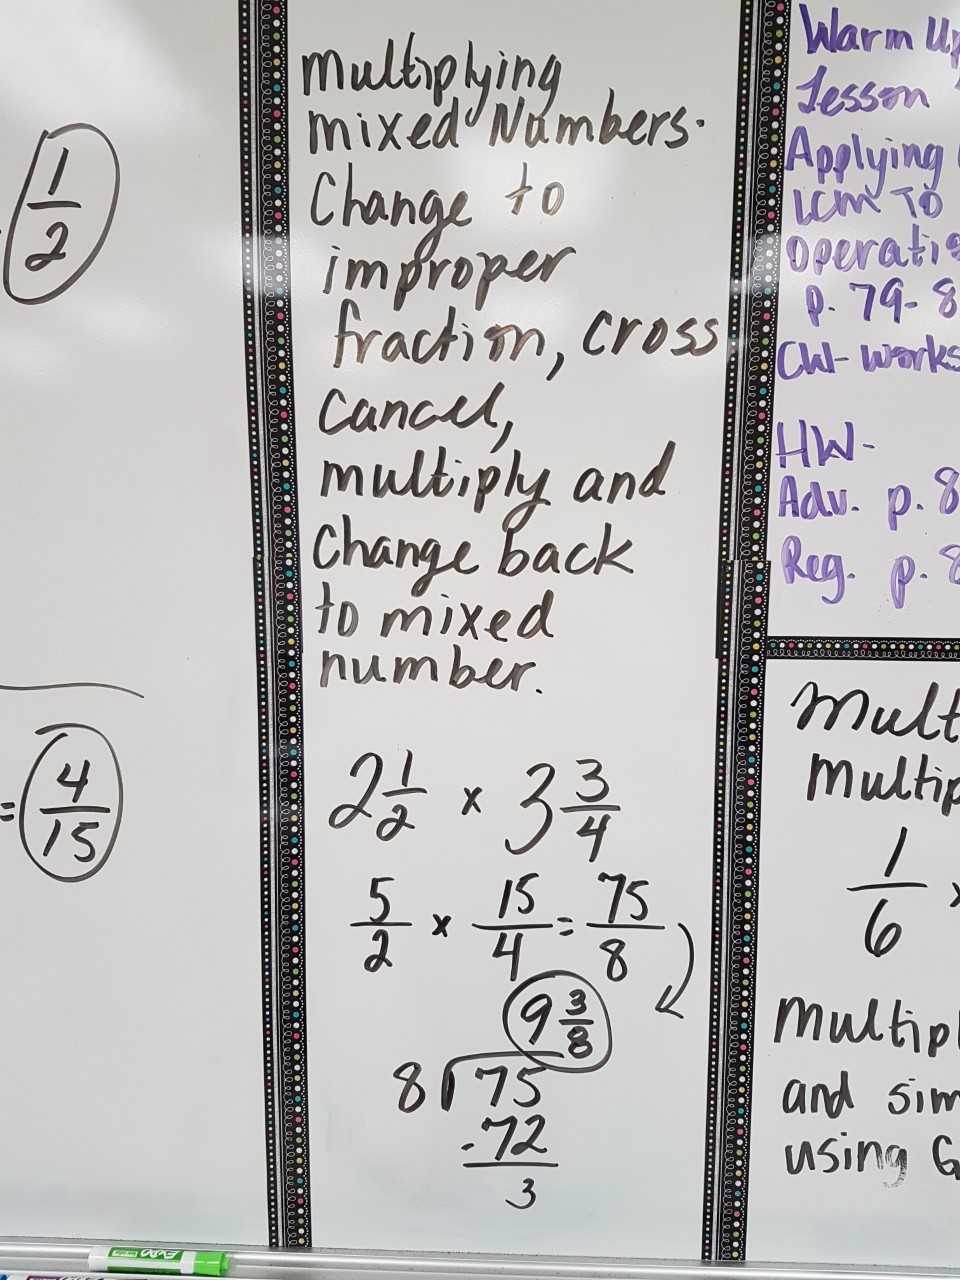 1
2
=
4
15
Multiplying
mixed Numbers.
Change to
improper
fraction, cross
cancel,
multiply and
change back
to mixed
number.
2 1/2 x 3 3/4
5/2 x 15/4 = 75/8
9 3/8
8 75
-72
3
Warm Up
Lesson
Applying
LCM TO
operatio
p. 79-8
CW- works
HW-
Adv. p. 8
Reg. p. 8
Mult
Multip
1/6 x
Multipl
and sim
using G
EXPO